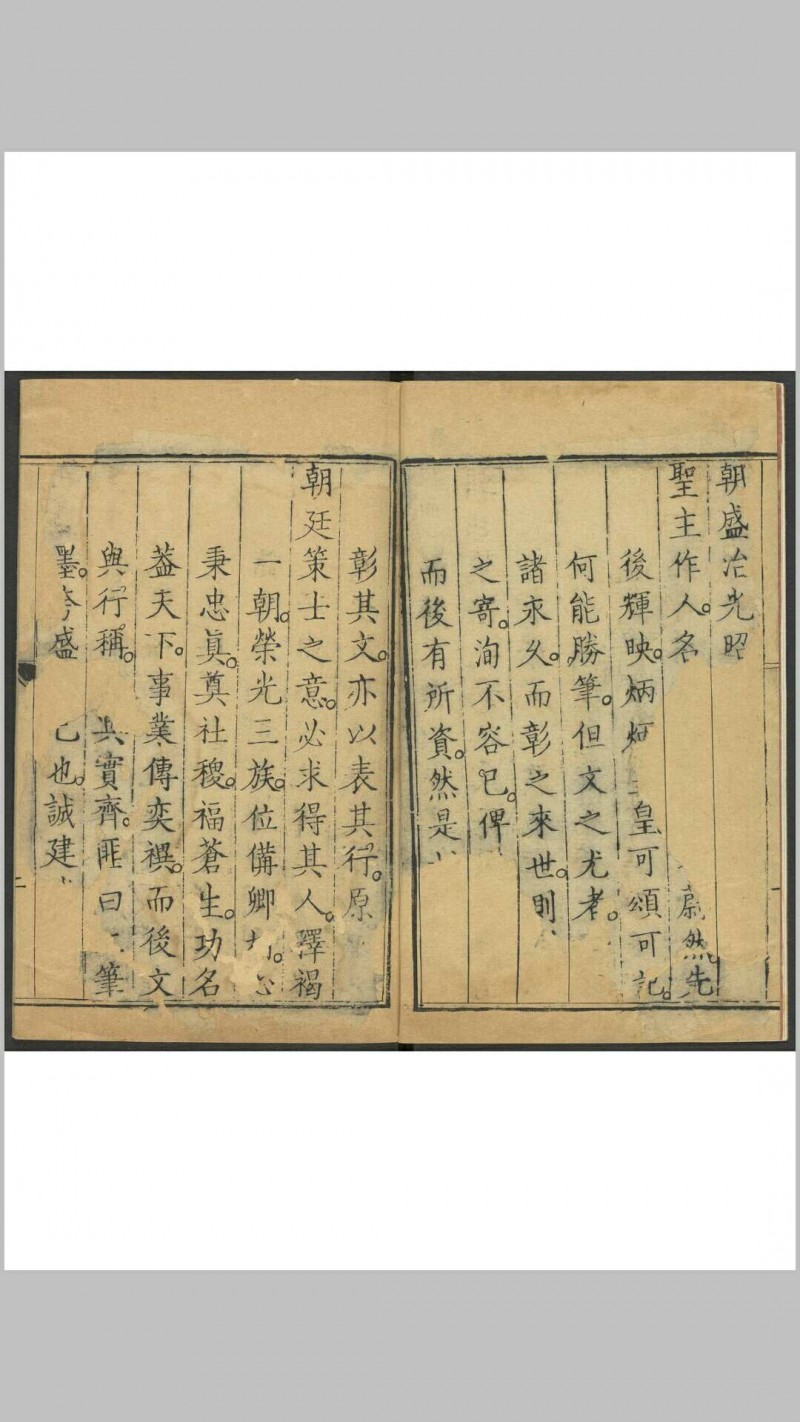 朝盛治光昭
聖主作人名蔚然先
後輝映炳炳皇可頌可記
何能勝筆但文之尤者
諸永久而彰之來世則
之寄洵不容已俾
而後有所資然是
彰其文亦以表其行原
朝廷策士之意必求得其人釋褐
一朝榮光三族位備卿
秉忠真奠社稷福蒼生功名
蓋天下事業傳奕禩而後文
與行稱實齊匪曰筆
墨夸盛已也誠建